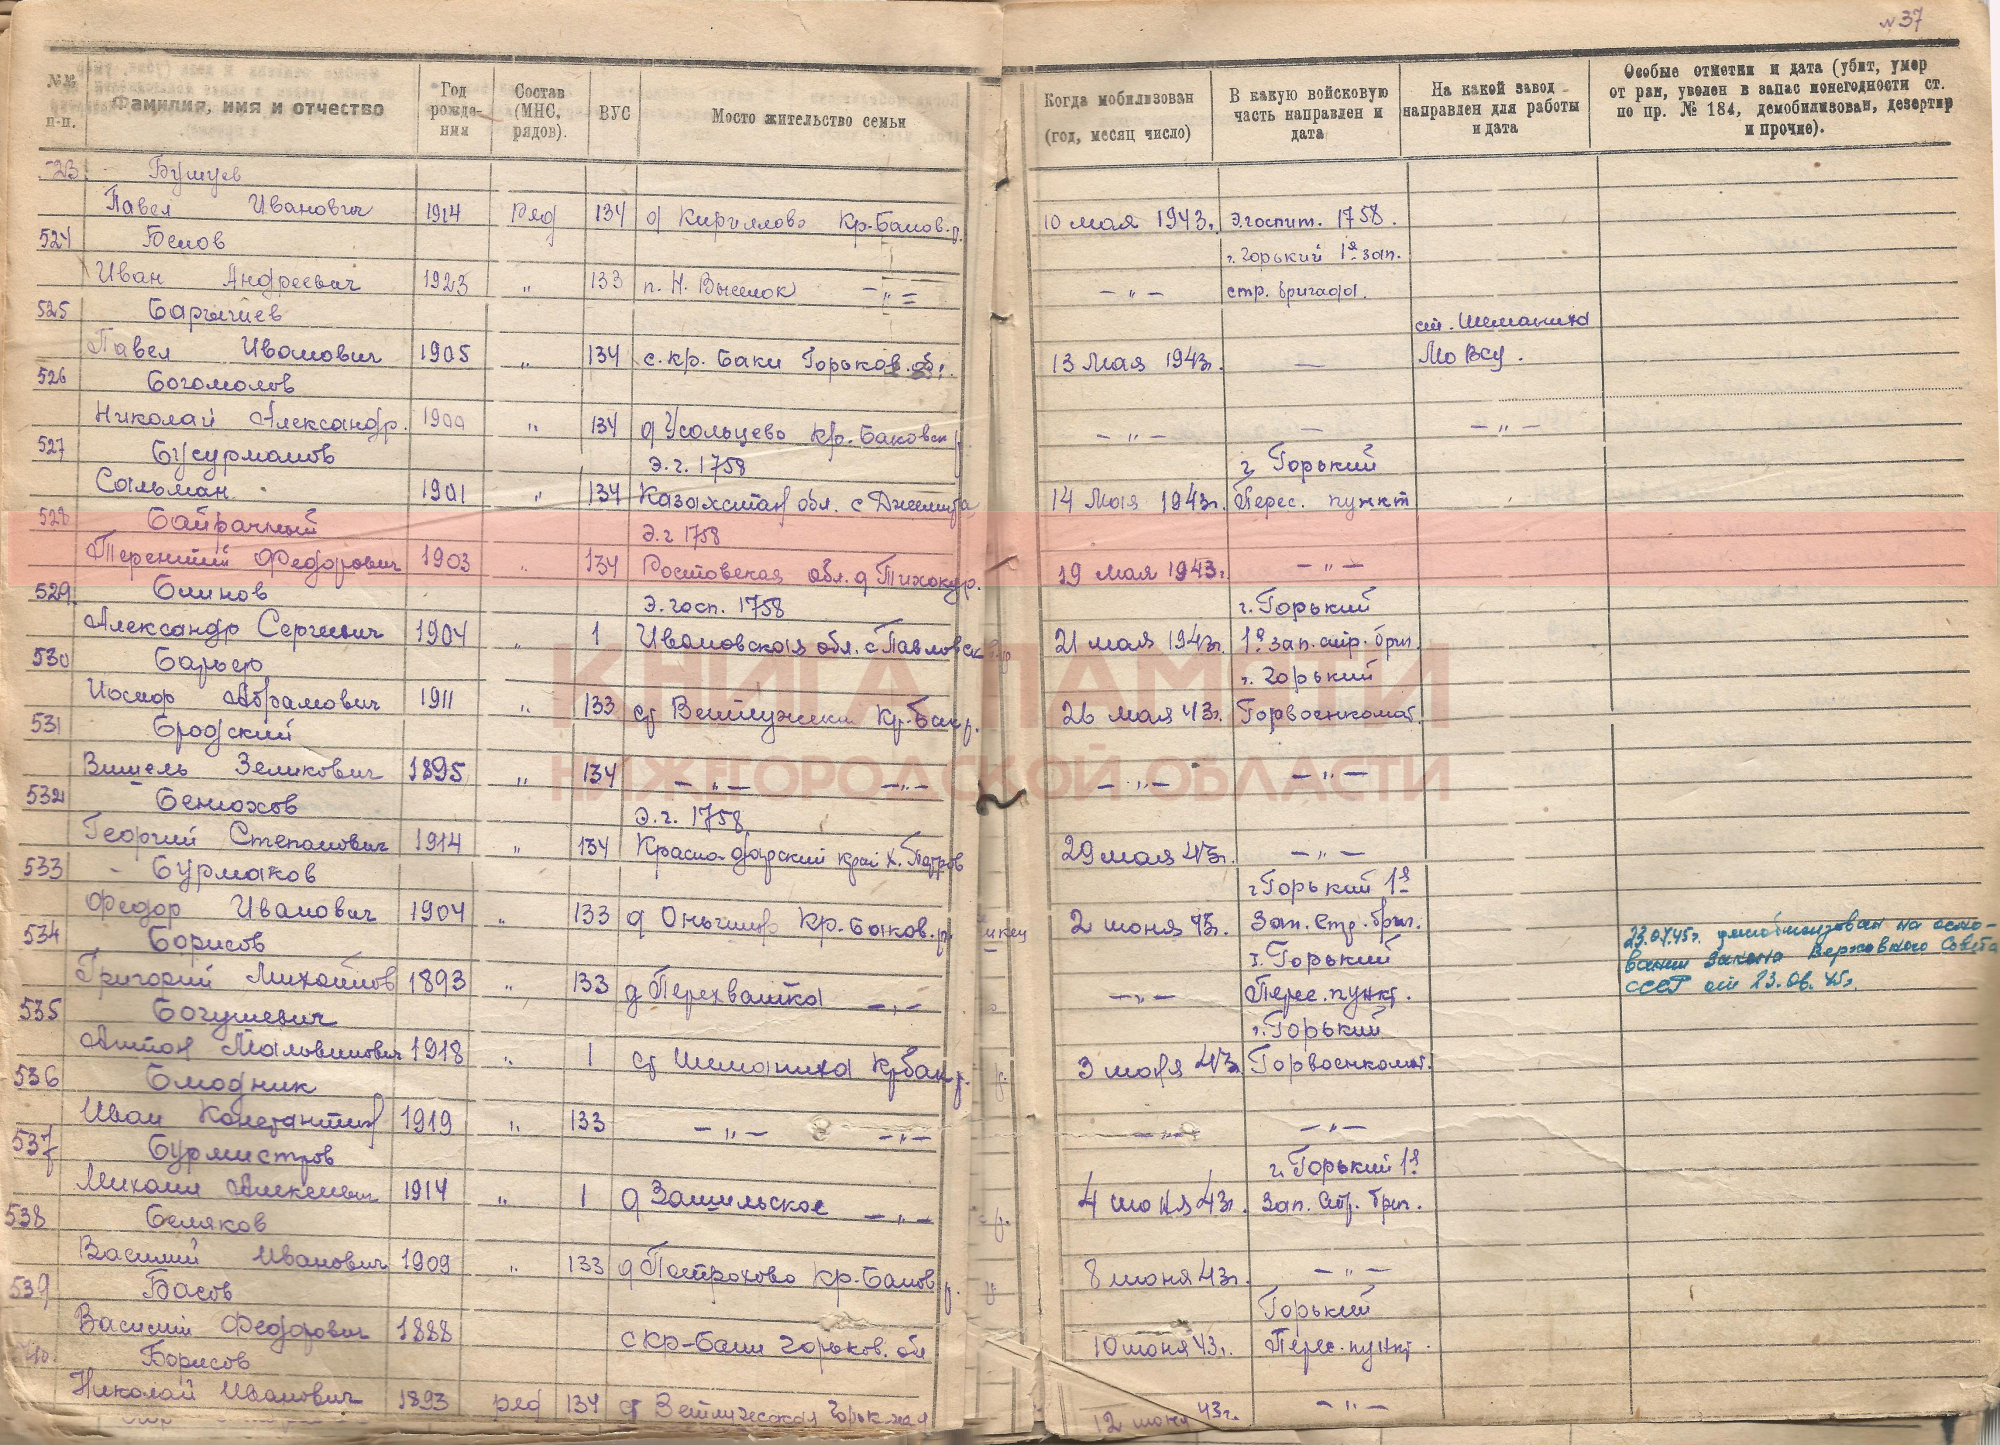 №37
№№ п-п.
Фамилия, имя и отчество
Год рожде-ния
Состав (МНС, рядов).
ВУС
Мосто жительство семьи
Когда мобилизован (год, месяц число)
В какую войсковую часть направлен и дата
На какой завод направлен для работы и дата
Особые отметки и дата (убит, умер от ран, уволен в запас понегодности ст. по пр. № 184, демобилизован, дезертир и прочие).
523. Бушуев
Павел Иванович 1914 ряд 134 д Кириллово Кр-Баков.р. 10 мая 1943г. Э.госпит. 1758.
524 Белов г.Горький 1й зап.
Иван Андреевич 1923 " 133 п. Н. Выселок — " — — " — стр. бригада.
525 Барышев ст. Шеманиха
Павел Иванович 1905 " 134 с. кр. Баки Горьков. об. 13 Мая 1943г. — Мо ВСУ.
526 Богомолов
Николай Александр. 1900 " 134 д Усольцево Кр.-Баковск р. — " — — — " —
527 Бусурманов Э.г. 1758 г. Горький
Сальман 1901 " 134 Казахстан обл. с 14 Мая 1943г. Перес. пункт
528 Байрачный Э.г 1758
Терентий Федорович 1903 " 134 Ростовская обл. д 19 мая 1943г. — " —
529. Блинов Э.госп. 1758 г. Горький
Александр Сергеевич 1904 " 1 Ивановская обл. с Павловск 21 мая 1943г. 1й зап. стр. бриг.
530 г. Горький
Иосиф Абрамович 1911 " 133 ст Ветлужская Кр-Бак р. 26 мая 43г. Горвоенкомат.
531 Бродский
Зеликович 1895 " 134 — " — — " — — " — — " —
532 Бенюхов Э.г. 1758
Георгий Степанович 1914 " 134 Красно-дарский край х. 29 мая 43г. — " —
533 Бурмаков г Горький 1й
Федор Иванович 1904 " 133 д Кр.-Баков. р. 2 июня 43г. Зап. Стр. бриг.
534 Борисов г. Горький
Григорий Михайлов 1893 " 133 д Перехватка — " — — " — Перес. пункт. 23.07.45г. демобилизован на осно-
вании Закона Верховного Совета
СССР от 23.06.45г.
535 Богушевич г. Горький
Антон 1918 " 1 ст Шеманиха Кр Бак р. 3 июня 43г Горвоенкомат.
536
Иван Константин 1919 " 133 — " — — " — — " — — " —
537 Бурмистров г. Горький 1й
Михаил Алексеевич 1914 " 1 д Зашильское — " — 4 июня 43г. Зап. Стр. бриг.
538 Беляков
Василий Иванович 1909 " 133 д Петрохово Кр.-Баков р. 8 июня 43г. — " —
539 Басов Горький
Василий Федорович 1888 с Кр-Баки Горьков. об 10 июня 43г. Перес. пункт.
540. Борисов
Николай Иванович 1893 ряд 134 ст Ветлужская 12 июня 43г. — " —
КНИГА ПАМЯТИ
НИЖЕГОРОДСКОЙ ОБЛАСТИ